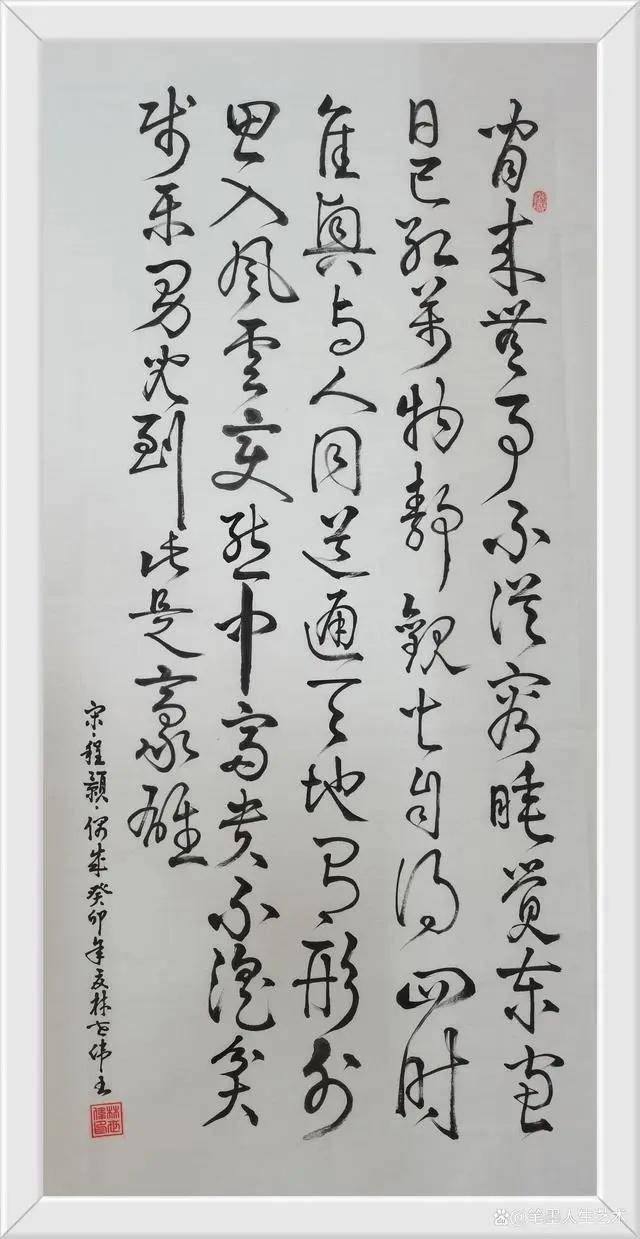 閒来無事不從容睡觉东窗
日已红萬物静觀皆自得四时
佳興与人同道通天地有形外
思入风雲变態中富贵不淫貧
贱乐男兒到此是豪雄
宋·程颢·偶成 癸卯年夏林世伟书
@笔墨人生艺术